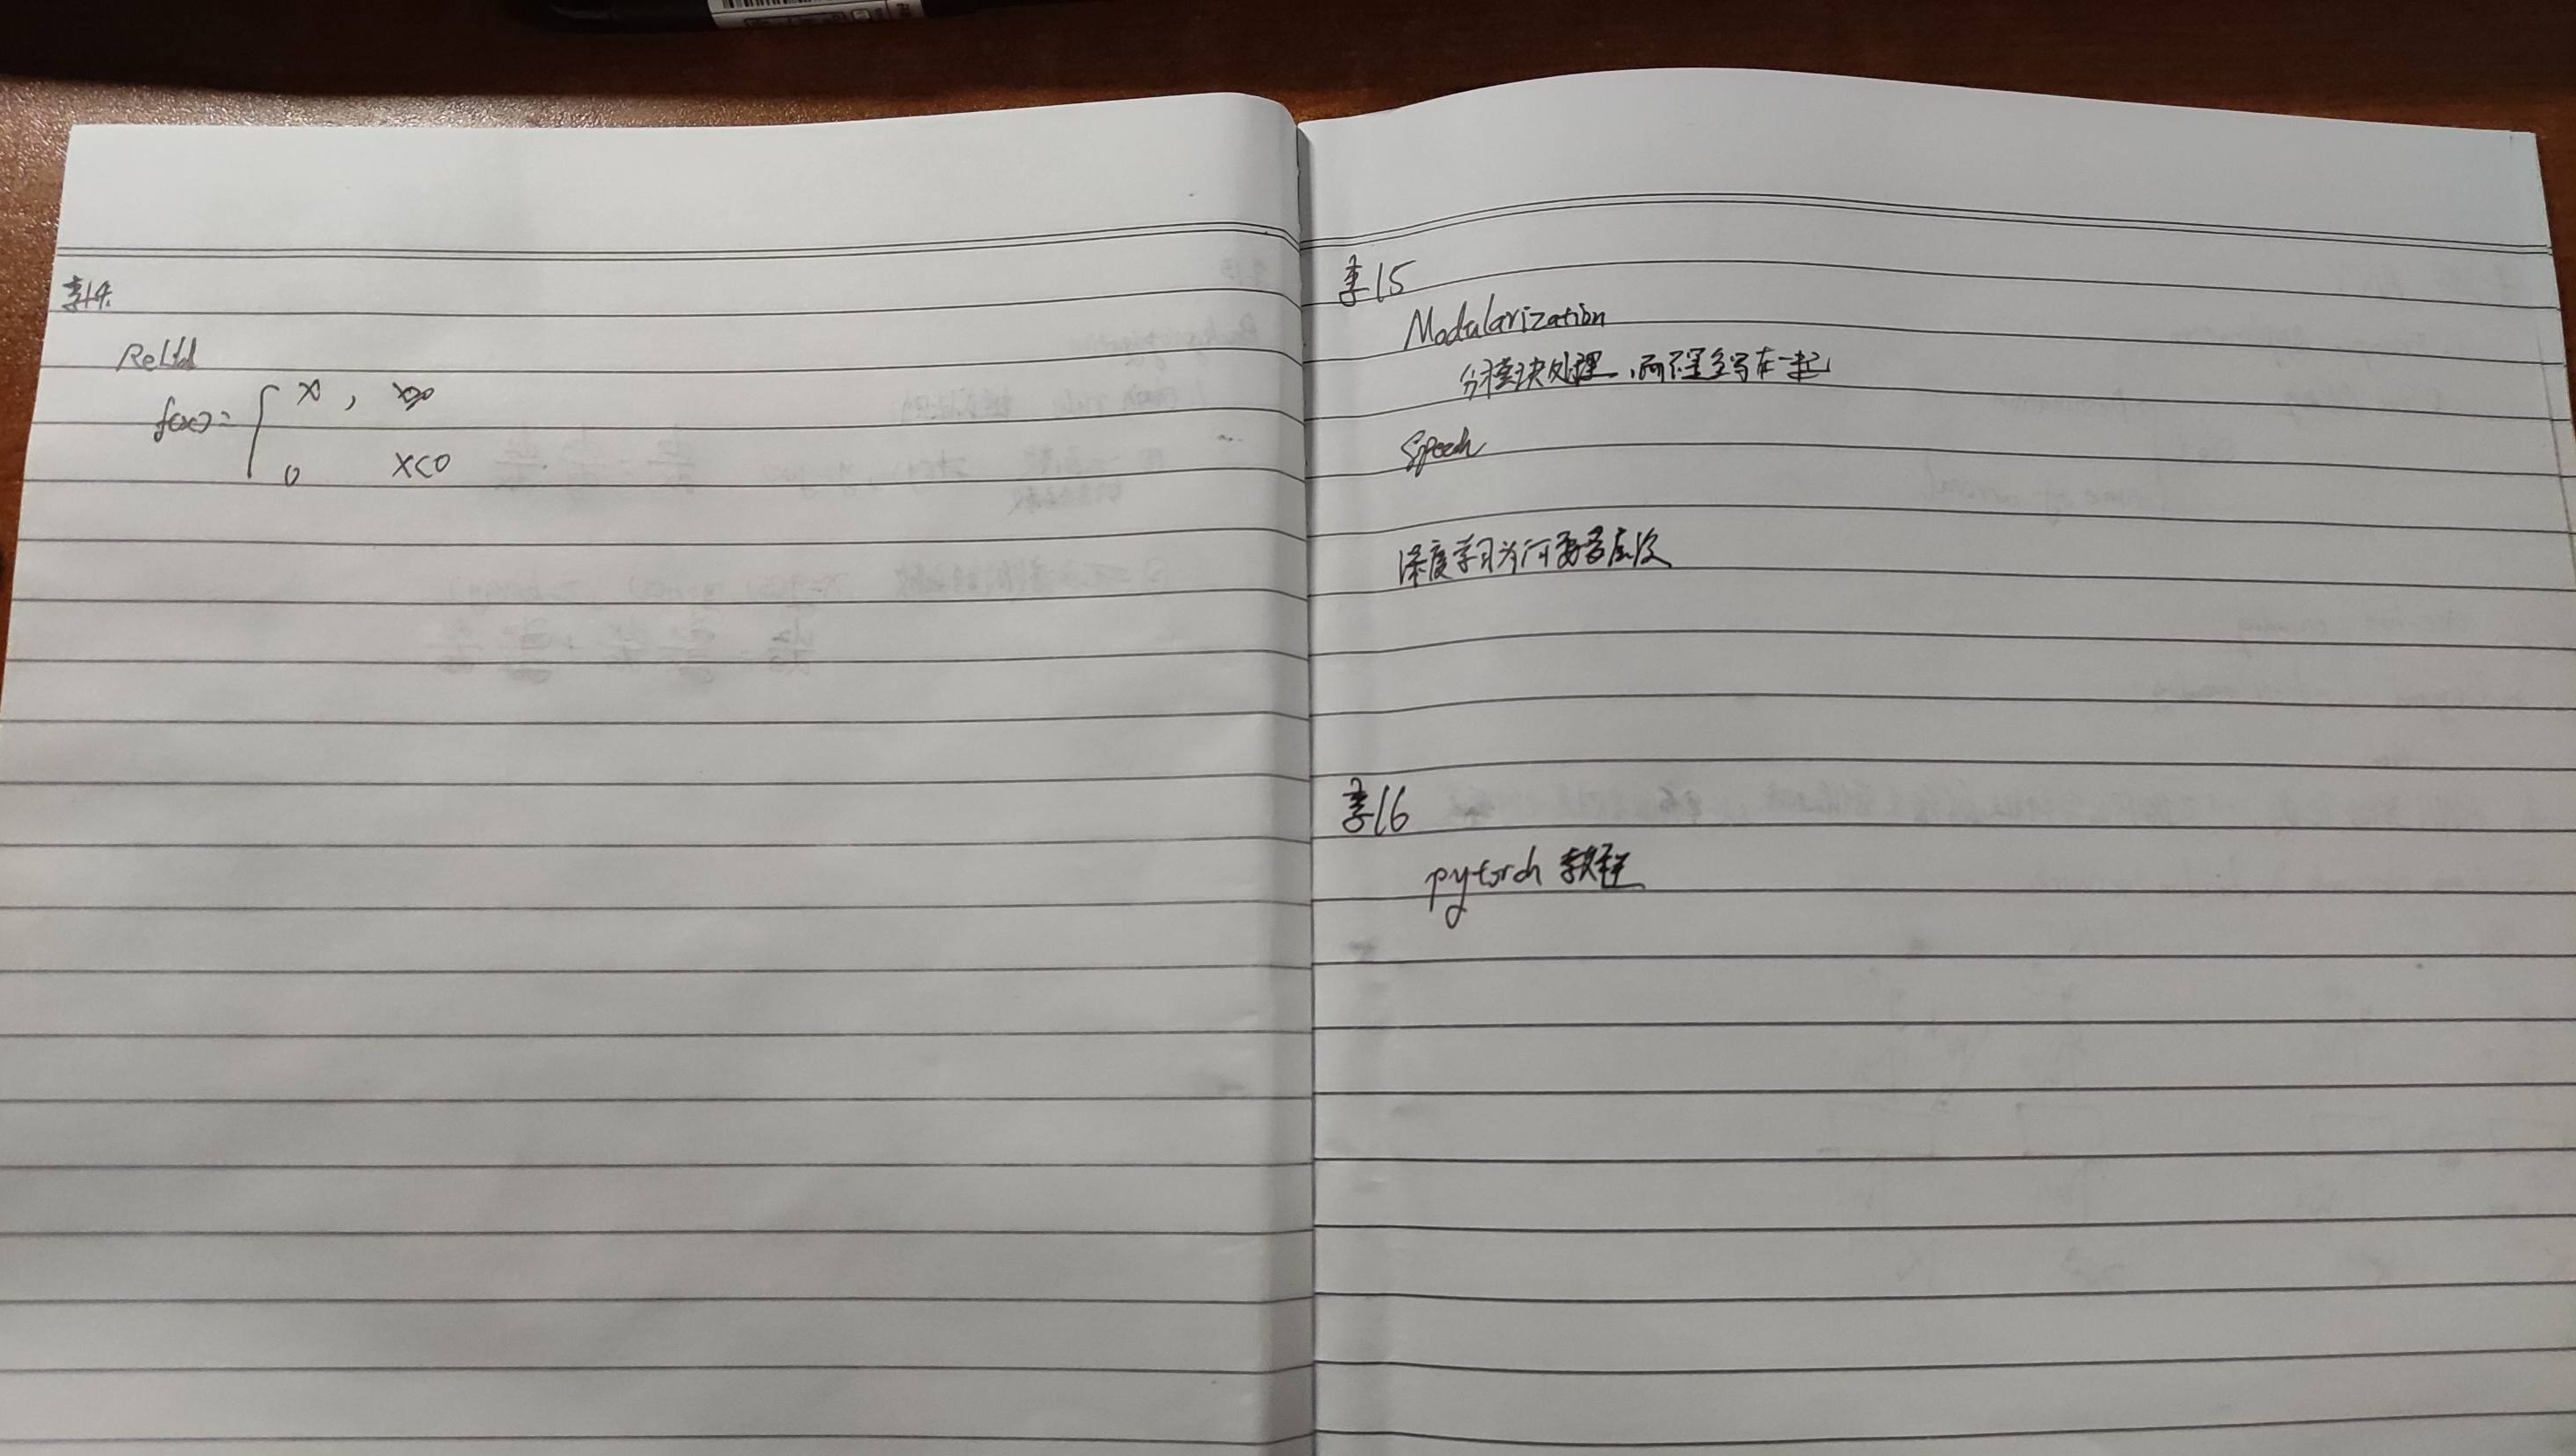 李14.
Relu
f(x)= { x , x≥0
0 x<0
李15
Modularization
分模块处理,而不是全写在一起
Speech
深度学习为何要多层次
李16
pytorch 教程